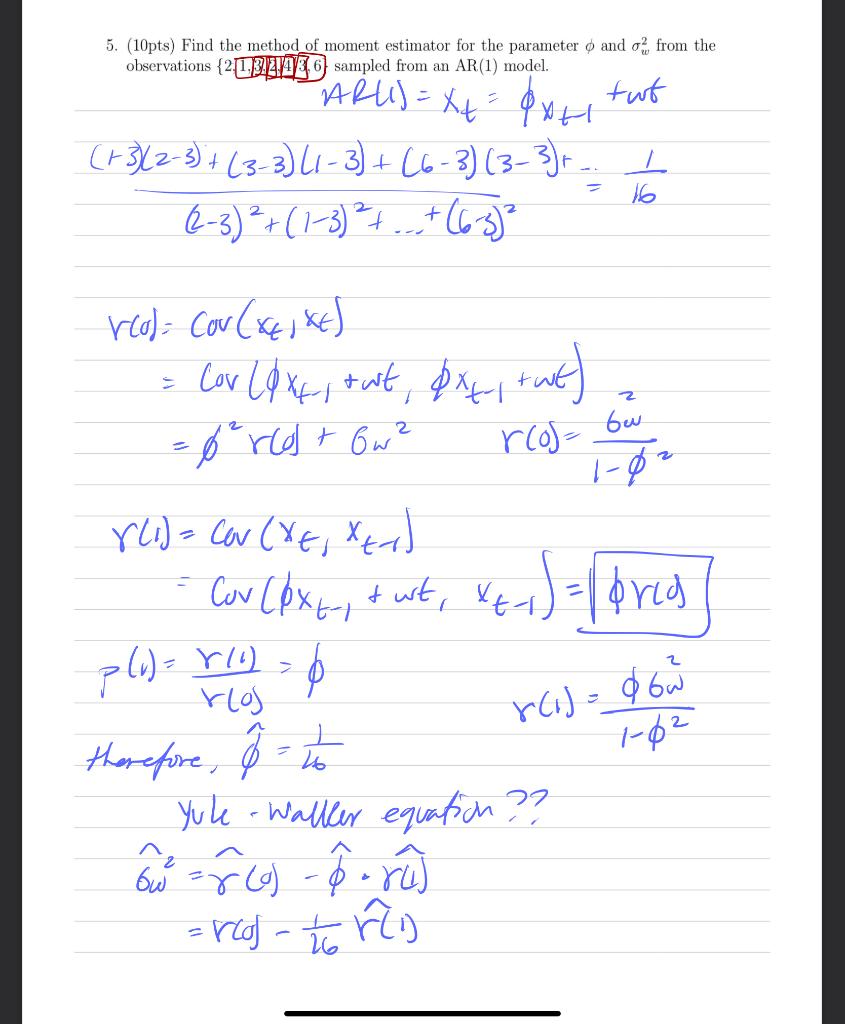 5. (10pts) Find the method of moment estimator for the parameter ϕ and σ²_w from the
observations {2, 1, 3, 2, 4, 3, 6} sampled from an AR(1) model.
AR(1) = x_t = ϕx_{t-1} + wt
((1-3)(2-3) + (3-3)(1-3) + (6-3)(3-3) + ...) / ((2-3)² + (1-3)² + ... + (6-3)²) = 1/16
r(0) = Cov(x_t, x_t)
= Cov(ϕx_{t-1} + wt, ϕx_{t-1} + wt)
= ϕ² r(0) + σw² r(0) = σw² / (1-ϕ²)
r(1) = Cov(x_t, x_{t-1})
= Cov(ϕx_{t-1} + wt, x_{t-1}) = ϕr(0)
ρ(1) = r(1)/r(0) = ϕ r(1) = ϕσw² / (1-ϕ²)
therefore, ϕ̂ = 1/16
Yule - Walker equation ??
σ̂w² = r̂(0) - ϕ̂ · r̂(1)
= r(0) - 1/16 r̂(1)